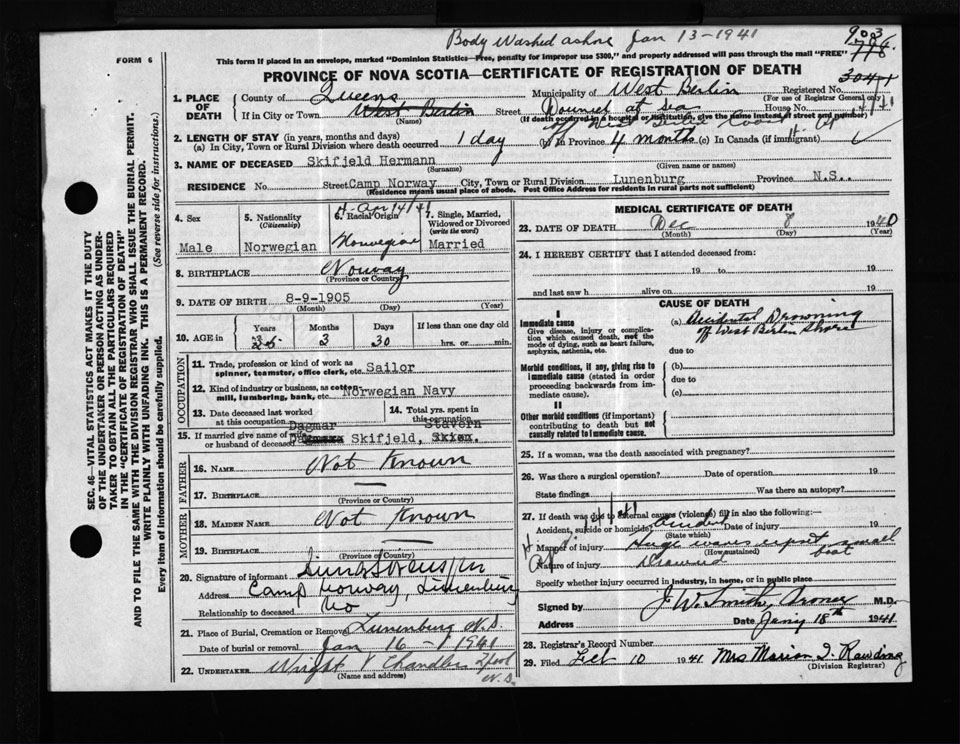 Body Washed ashore Jan 13-1941
9003
776.
FORM 6
This form if placed in an envelope, marked "Dominion Statistics—Free, penalty for improper use $300," and properly addressed will pass through the mail "FREE"
PROVINCE OF NOVA SCOTIA—CERTIFICATE OF REGISTRATION OF DEATH
1. PLACE OF DEATH
County of Queens Municipality of West Berlin Registered No.
(For use of Registrar General only)
If in City or Town West Berlin Street Drowned at sea House No.
(Name) (If death occurred in a hospital or institution, give the name instead of street and number)
off West
2. LENGTH OF STAY (in years, months and days)
(a) In City, Town or Rural Division where death occurred 1 day (b) In Province 4 months (c) In Canada (if immigrant)
3. NAME OF DECEASED Skifjeld Hermann
(Surname) (Given name or names)
RESIDENCE No. Street Camp Norway City, Town or Rural Division Lunenburg Province N.S..
(Residence means usual place of abode. Post Office Address for residents in rural parts not sufficient)
4. Sex
Male
5. Nationality
(Citizenship)
Norwegian
6. Racial Origin
Norwegian
7. Single, Married, Widowed or Divorced
(write the word)
Married
8. BIRTHPLACE Norway
(Province or Country)
9. DATE OF BIRTH 8-9-1905
(Month) (Day) (Year)
10. AGE in
Years Months Days If less than one day old
3 30 hrs. or min.
OCCUPATION
11. Trade, profession or kind of work as
spinner, teamster, office clerk, etc. Sailor
12. Kind of industry or business, as cotton
mill, lumbering, bank, etc. Norwegian Navy
13. Date deceased last worked
at this occupation
14. Total yrs. spent in
this occupation
Dagmar Stavern
15. If married give name of wife
or husband of deceased Skifjeld,
FATHER
16. NAME Not Known
17. BIRTHPLACE —
(Province or Country)
MOTHER
18. MAIDEN NAME Not Known
19. BIRTHPLACE —
(Province or Country)
20. Signature of informant
Address Camp Norway, Lunenburg
Relationship to deceased No
21. Place of Burial, Cremation or Removal Lunenburg N.S.
Date of burial or removal Jan 16 - 1941
22. UNDERTAKER Wright & Chandler L'pool
(Name and address) N.S.
MEDICAL CERTIFICATE OF DEATH
23. DATE OF DEATH Dec 8 1940
(Month) (Day) (Year)
24. I HEREBY CERTIFY that I attended deceased from:
19 to 19
and last saw h alive on 19
CAUSE OF DEATH
I
Immediate cause
Give disease, injury or complication which caused death, not the mode of dying, such as heart failure, asphyxia, asthenia, etc.
(a) Accidental Drowning
off West Berlin Shore
due to
Morbid conditions, if any, giving rise to immediate cause (stated in order proceeding backwards from immediate cause).
(b)
due to
(c)
II
Other morbid conditions (if important) contributing to death but not causally related to immediate cause.
25. If a woman, was the death associated with pregnancy?
26. Was there a surgical operation? Date of operation 19
State findings Was there an autopsy?
27. If death was due to external causes (violence) fill in also the following:
Accident, suicide or homicide? accident Date of injury 19
(State which)
Manner of injury Huge waves upset small
(How sustained) boat
Nature of injury Drowned
Specify whether injury occurred in industry, in home, or in public place
Signed by J. W. Smith, Coroner M.D.
Address Date Jany 18th 1941
28. Registrar's Record Number
29. Filed Feb 10 1941 Mrs Marion I. Rawding
(Division Registrar)
SEC. 46—VITAL STATISTICS ACT MAKES IT THE DUTY
OF THE UNDERTAKER OR PERSON ACTING AS UNDERTAKER TO OBTAIN ALL THE PARTICULARS REQUIRED
IN THE "CERTIFICATE OF REGISTRATION OF DEATH"
AND TO FILE THE SAME WITH THE DIVISION REGISTRAR WHO SHALL ISSUE THE BURIAL PERMIT.
WRITE PLAINLY WITH UNFADING INK. THIS IS A PERMANENT RECORD.
Every item of Information should be carefully supplied. (See reverse side for instructions.)